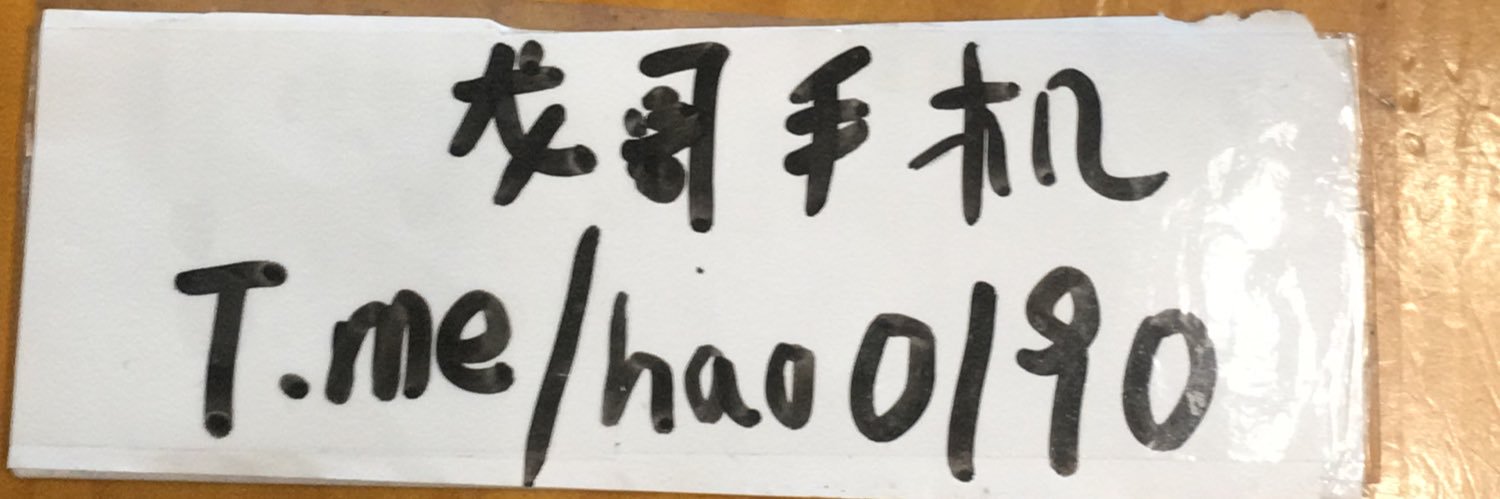 龙哥手机
T.me/hao0190